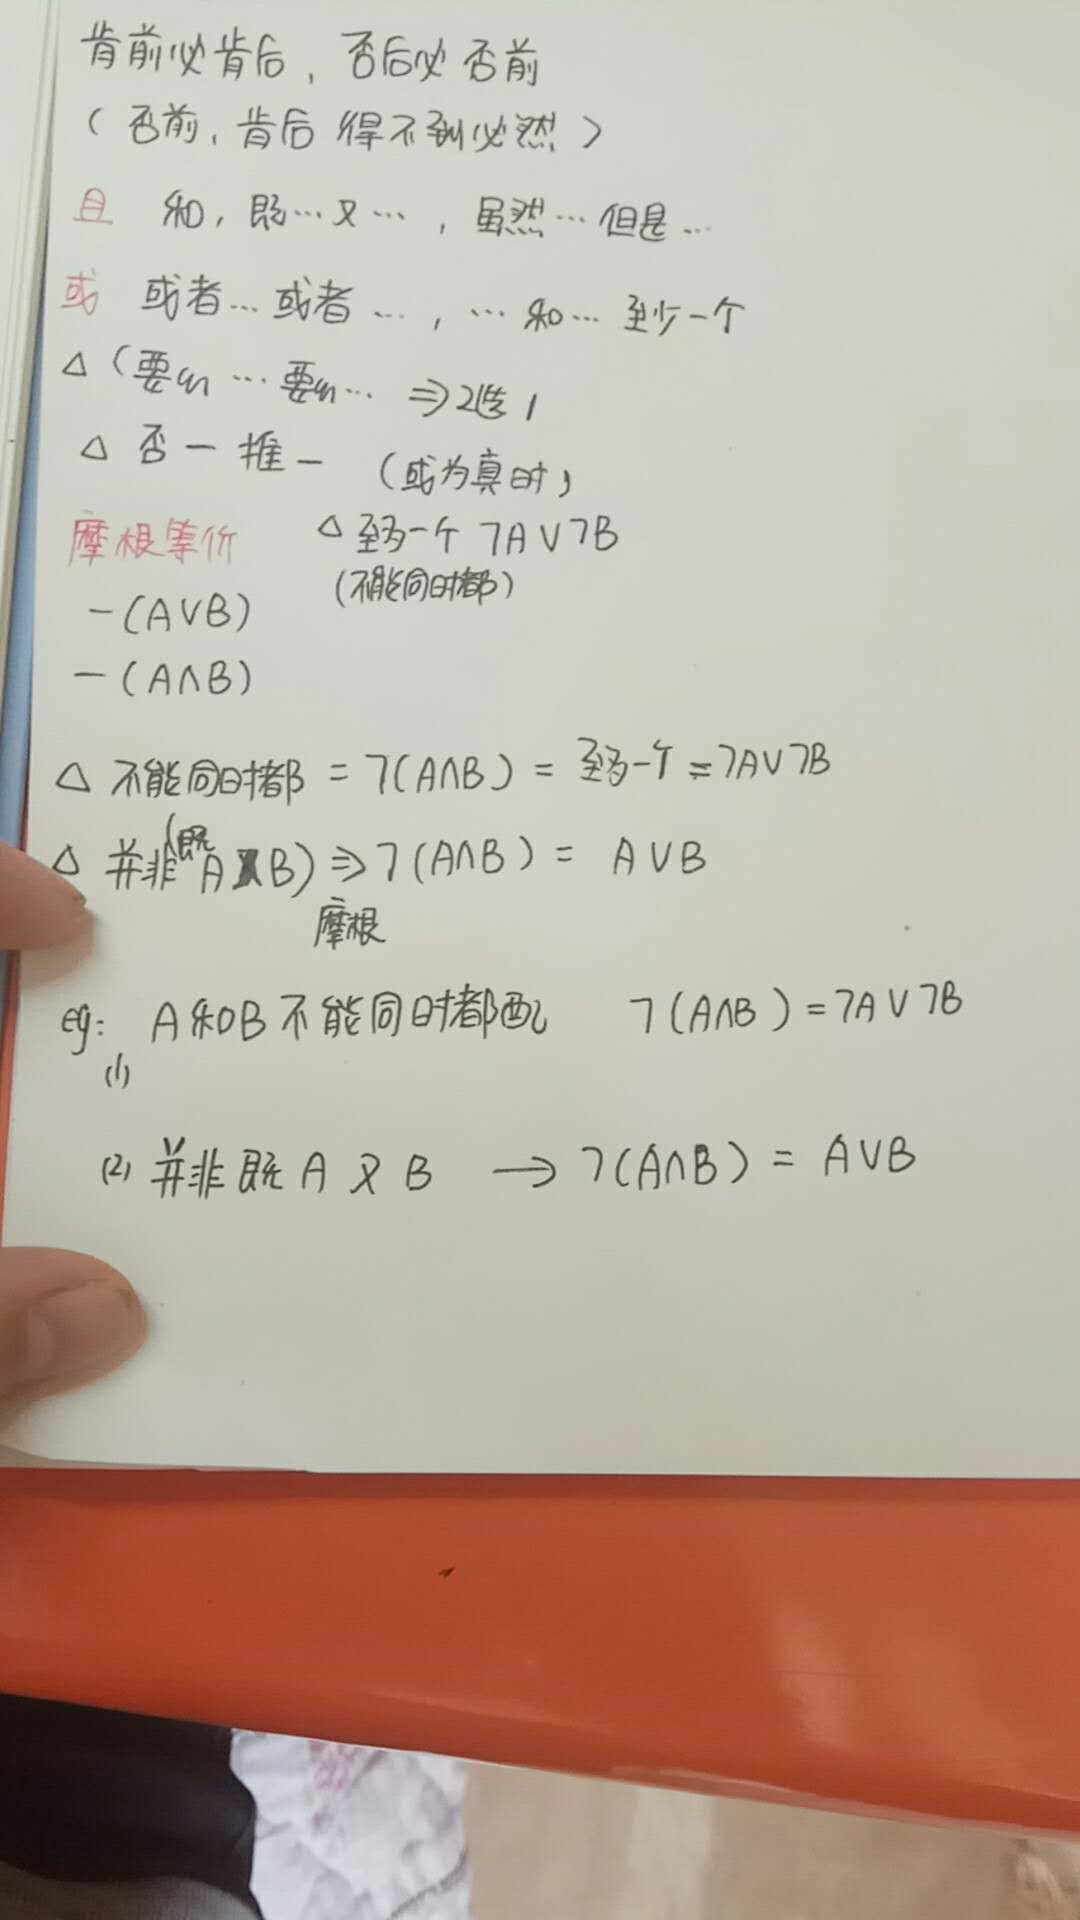 肯前必肯后，否后必否前
（否前，肯后 得不到必然）
且 和，既…又…，虽然…但是…
或 或者…或者…，…和…至少一个
△（要么…要么… ⇒2选1
△ 否一推一 （或为真时）
摩根等价 △至多一个 ¬A∨¬B
（不能同时都）
−(A∨B)
−(A∧B)
△ 不能同时都 = ¬(A∧B) = 至多一个 = ¬A∨¬B
△ 并非(既A又B) ⇒ ¬(A∧B) = A∨B
摩根
eg: A和B不能同时都配 ¬(A∧B)=¬A∨¬B
(1)
(2) 并非既A又B → ¬(A∧B) = A∨B